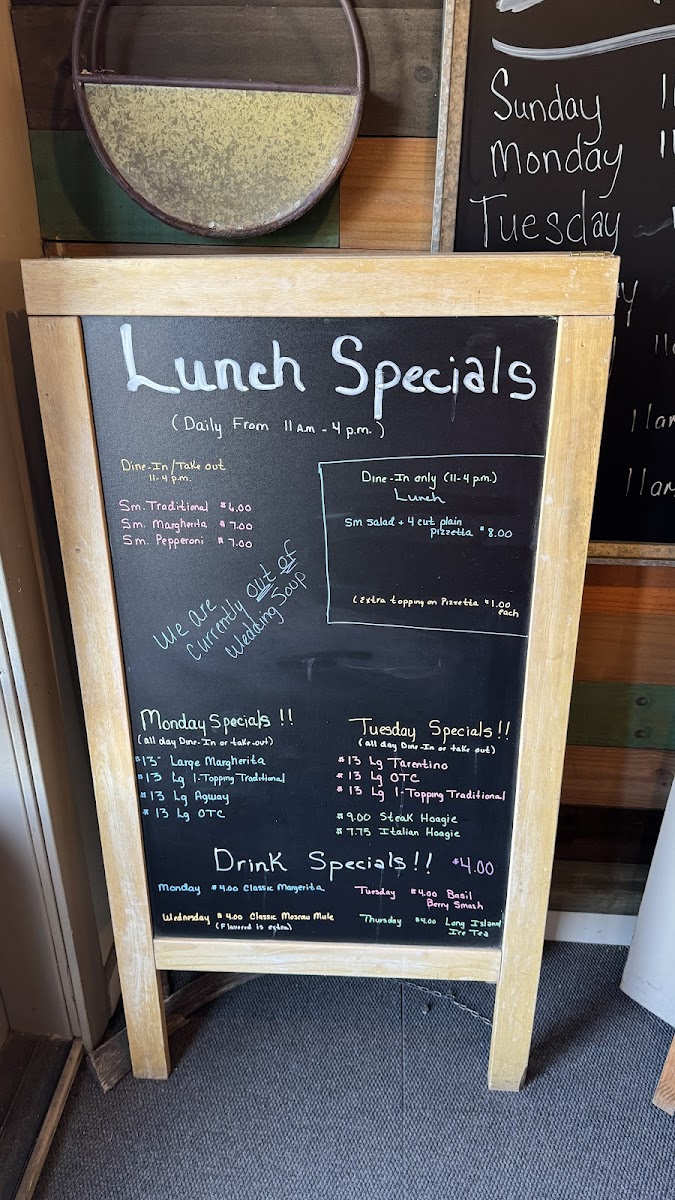 Sunday 11
Monday 11
Tuesday
y
11a
11am
11am
Lunch Specials
(Daily From 11 AM - 4 p.m.)
Dine-In/Take out
11-4 p.m.
Sm. Traditional $6.00
Sm. Margherita $7.00
Sm. Pepperoni $7.00
Dine-In only (11-4 p.m.)
Lunch
Sm salad + 4 cut plain
Pizzetta $8.00
(Extra topping on Pizzetta $1.00
each
We are
Currently out of
Wedding Soup
Monday Specials !!
(all day Dine-In or take-out)
$13 Large Margherita
$13 Lg 1-Topping Traditional
$13 Lg Agway
$13 Lg OTC
Tuesday Specials!!
(all day Dine-In or take out)
$13 Lg Tarentino
$13 Lg OTC
$13 Lg 1-Topping Traditional
$9.00 Steak Hoagie
$7.75 Italian Hoagie
Drink Specials!! $4.00
Monday $4.00 Classic Margerita
Tuesday $4.00 Basil
Berry Smash
Wednesday $4.00 Classic Moscow Mule
(Flavored is extra)
Thursday $4.00 Long Island
Ice Tea